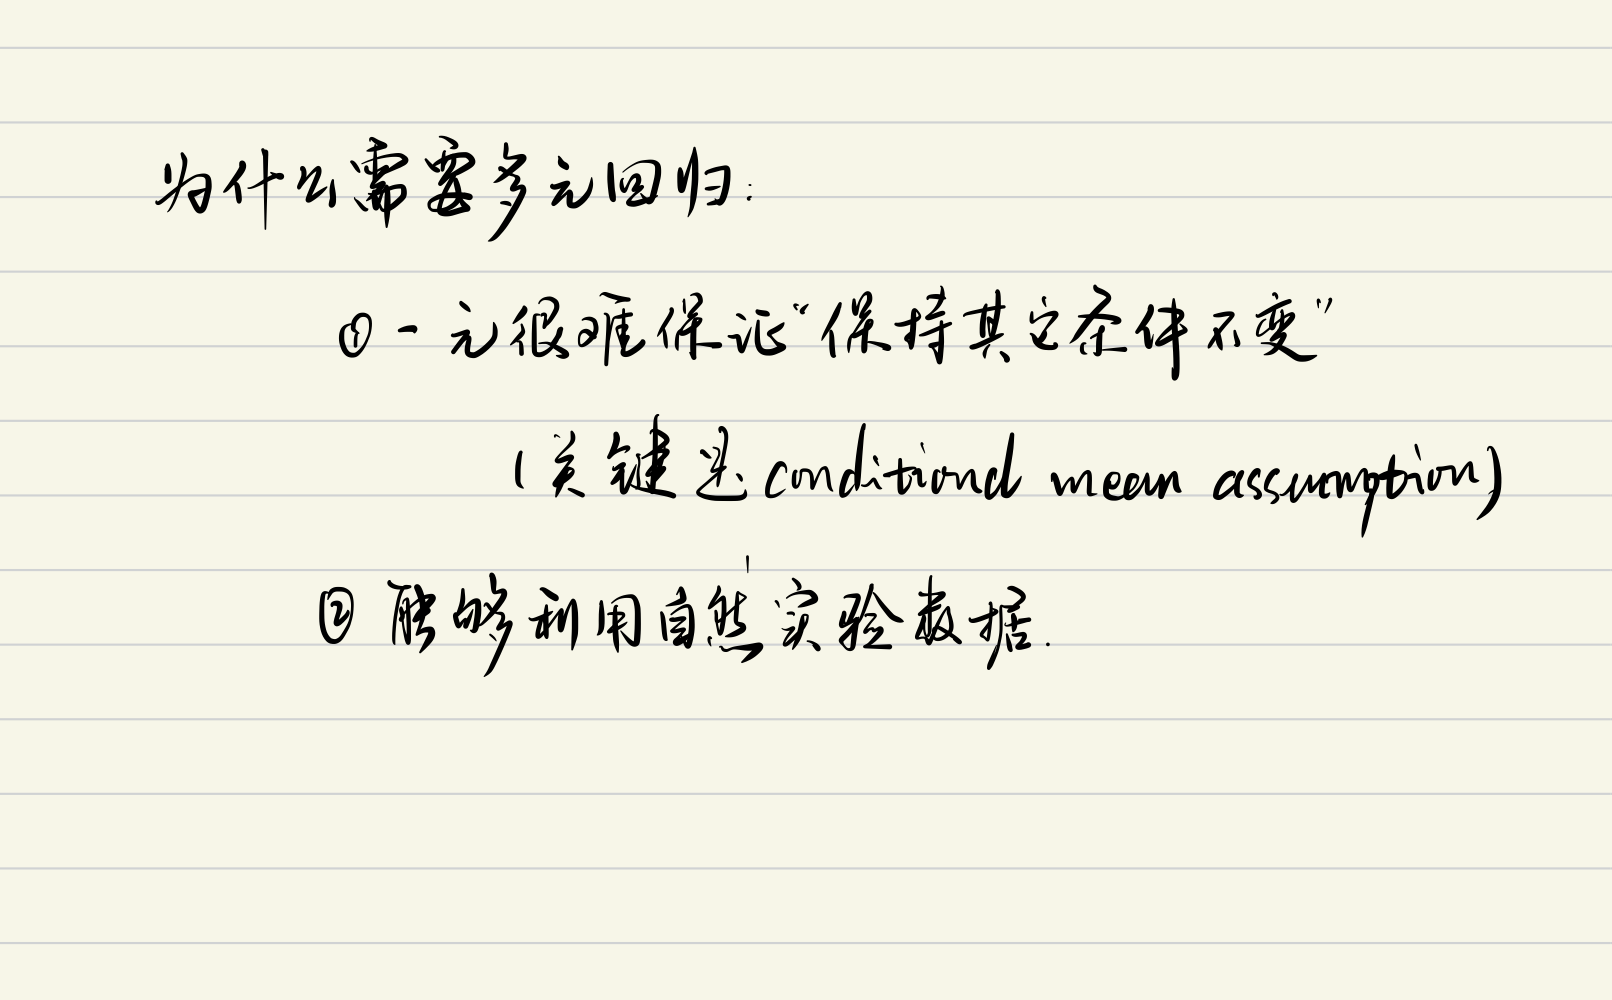 为什么需要多元回归:
① 一元很难保证“保持其它条件不变”
(关键是 conditional mean assumption)
② 能够利用自然实验数据.